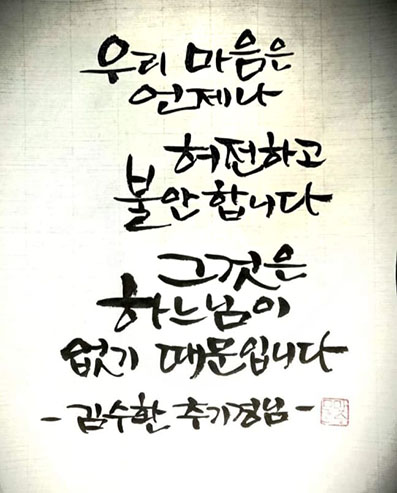 우리 마음은
언제나
허전하고
불안합니다
그것은
하느님이
없기 때문입니다
- 김수환 추기경님 -